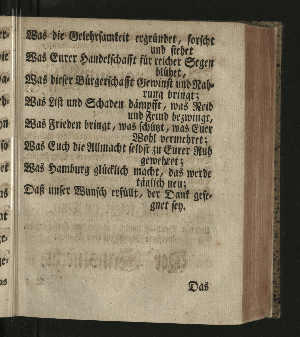 Was die Gelehrsamkeit ergründet, forscht
und siehet
Was Eurer Handelschafft für reicher Segen
blühet,
Was dieser Bürgerschafft Gewinst und Nah-
rung bringt;
Was List und Schaden dämpfft, was Neid
und Feind bezwingt,
Was Frieden bringt, was schützt, was Euer
Wohl vermehret;
Was Euch die Allmacht selbst zu Eurer Ruh
gewehret;
Was Hamburg glücklich macht, das werde
täglich neu;
Daß unser Wunsch erfüllt, der Dank gese-
gnet sey.
Das